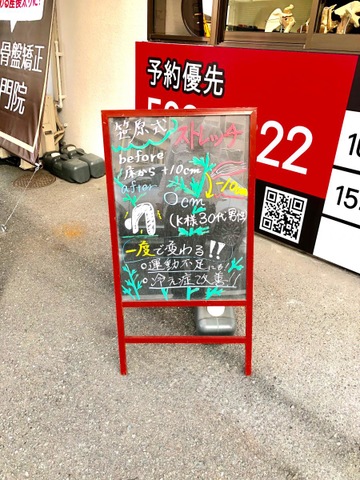 骨盤矯正
門院
予約優先
22
笹原式
ストレッチ
before
床から+10cm
after
0cm
(K様30代男性)
一度で変わる!!
○運動不足にも
○冷え症改善!!